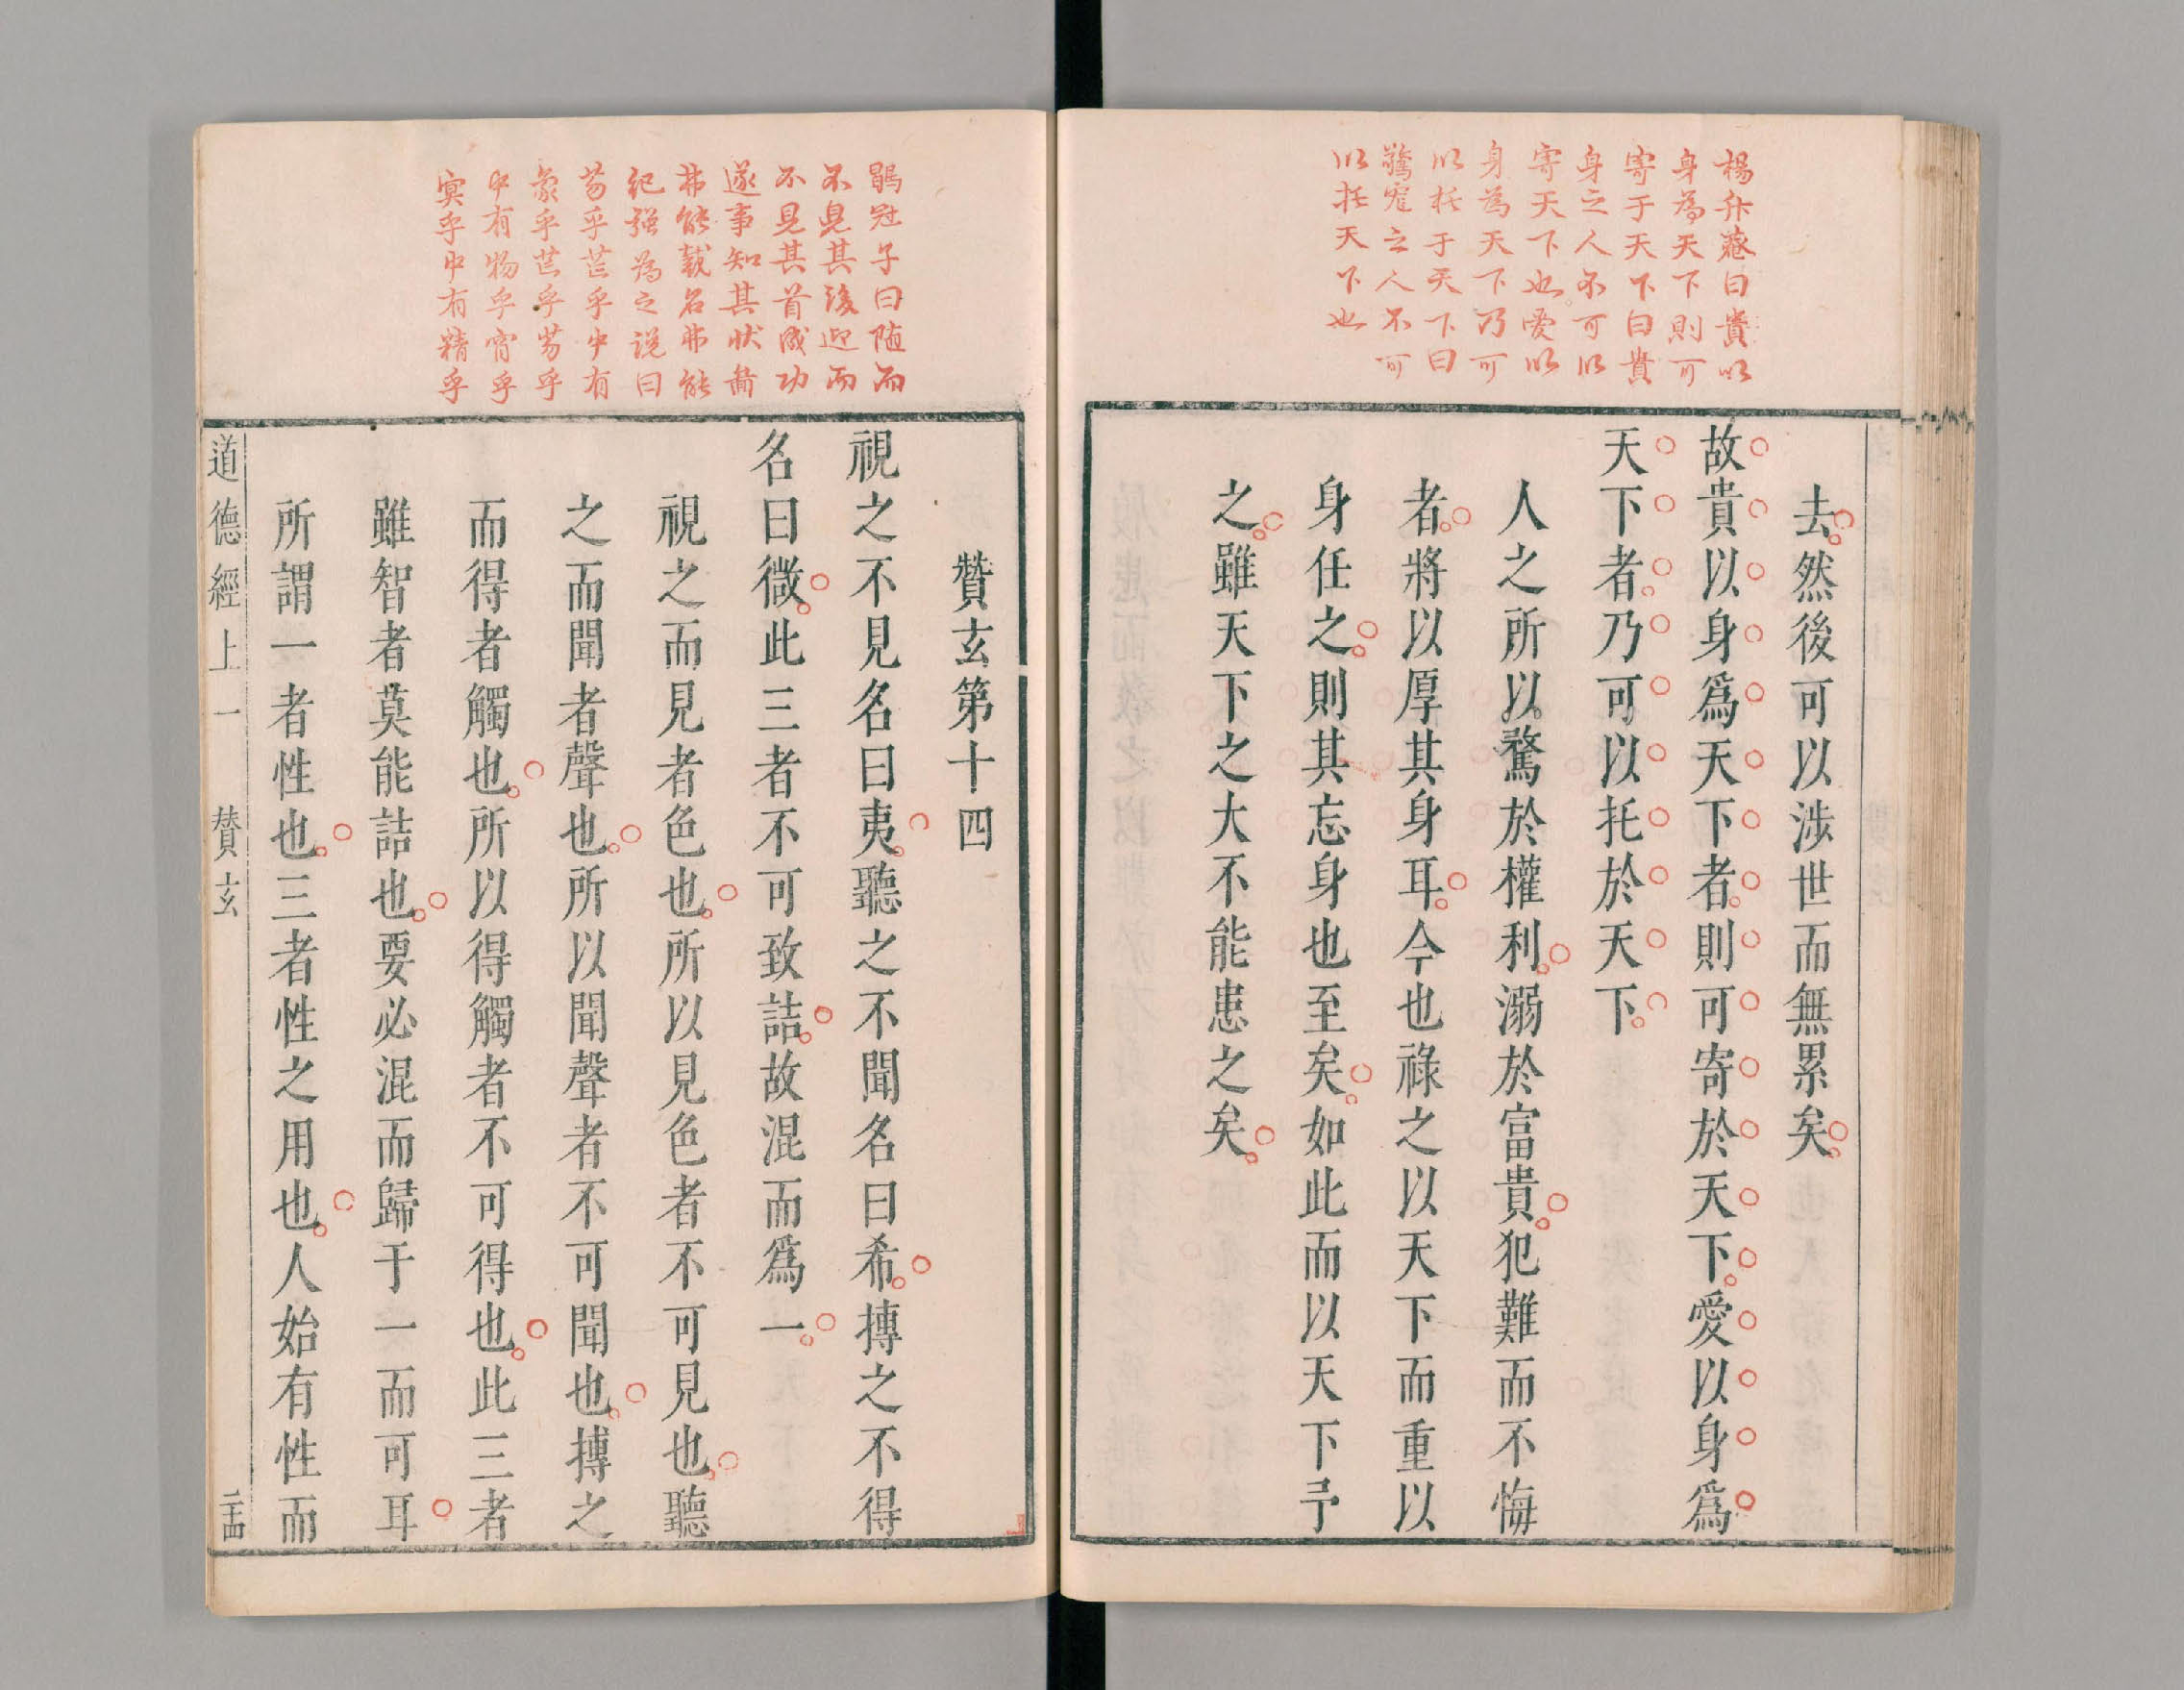 楊升菴曰貴以
身為天下則可
寄于天下曰貴
身之人不可以
寄天下也愛以
身為天下乃可
以托于天下曰
驚寵之人不可
以托天下也
去然後可以涉世而無累矣
故貴以身爲天下者則可寄於天下愛以身爲
天下者乃可以托於天下
人之所以騖於權利溺於富貴犯難而不悔
者將以厚其身耳今也祿之以天下而重以
身任之則其忘身也至矣如此而以天下予
之雖天下之大不能患之矣
鶡冠子曰随而
不見其後迎而
不見其首成功
遂事知其状啚
弗能载名弗能
纪强為之说曰
芴乎芒乎中有
象乎芒乎芴乎
中有物乎窅乎
冥乎中有精乎
贊玄第十四
視之不見名曰夷聽之不聞名曰希摶之不得
名曰微此三者不可致詰故混而爲一
視之而見者色也所以見色者不可見也聽
之而聞者聲也所以聞聲者不可聞也摶之
而得者觸也所以得觸者不可得也此三者
雖智者莫能詰也要必混而歸于一而可耳
所謂一者性也三者性之用也人始有性而
道德經上一 贊玄 二十四